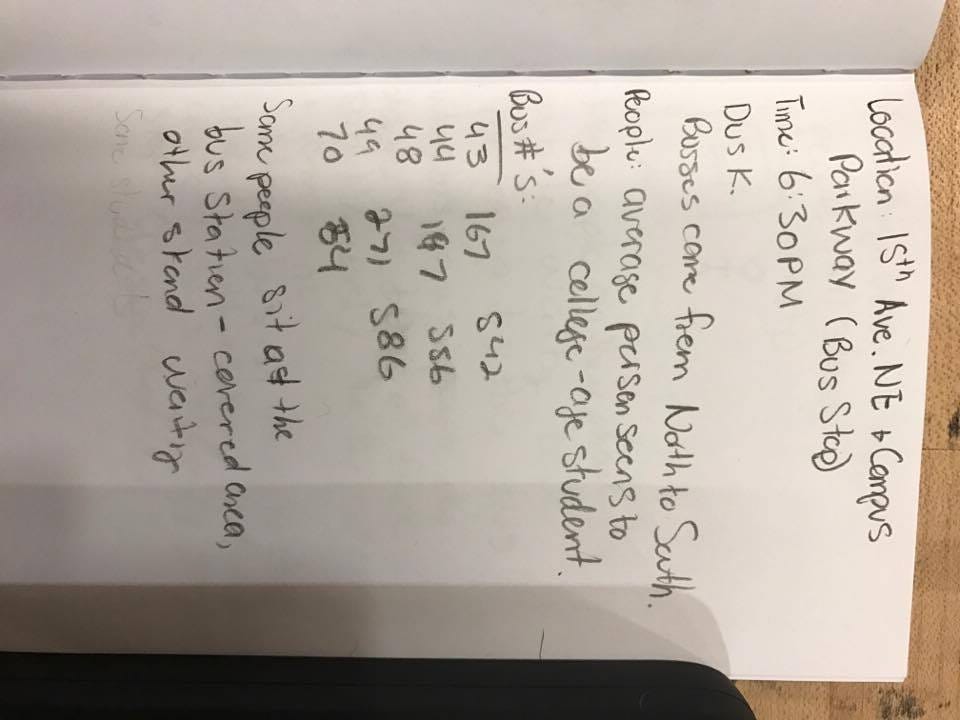 Location: 15th Ave. NE + Campus
Parkway (Bus Stop)
Time: 6:30PM
Dusk.
Busses come from North to South.
People: average person seems to
be a college-age student.
Bus #'s:
43 167 542
44 197 556
48 271 586
49 84
70
Some people sit at the
bus station - covered area,
other stand waiting
Some students